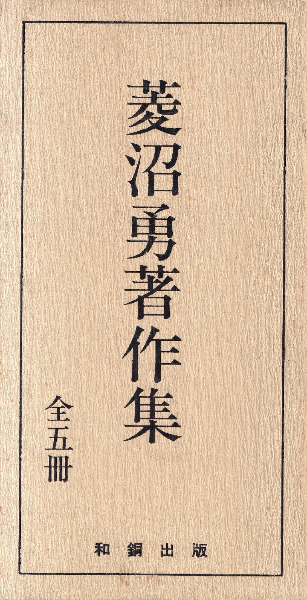 菱沼勇著作集
全五冊
和銅出版